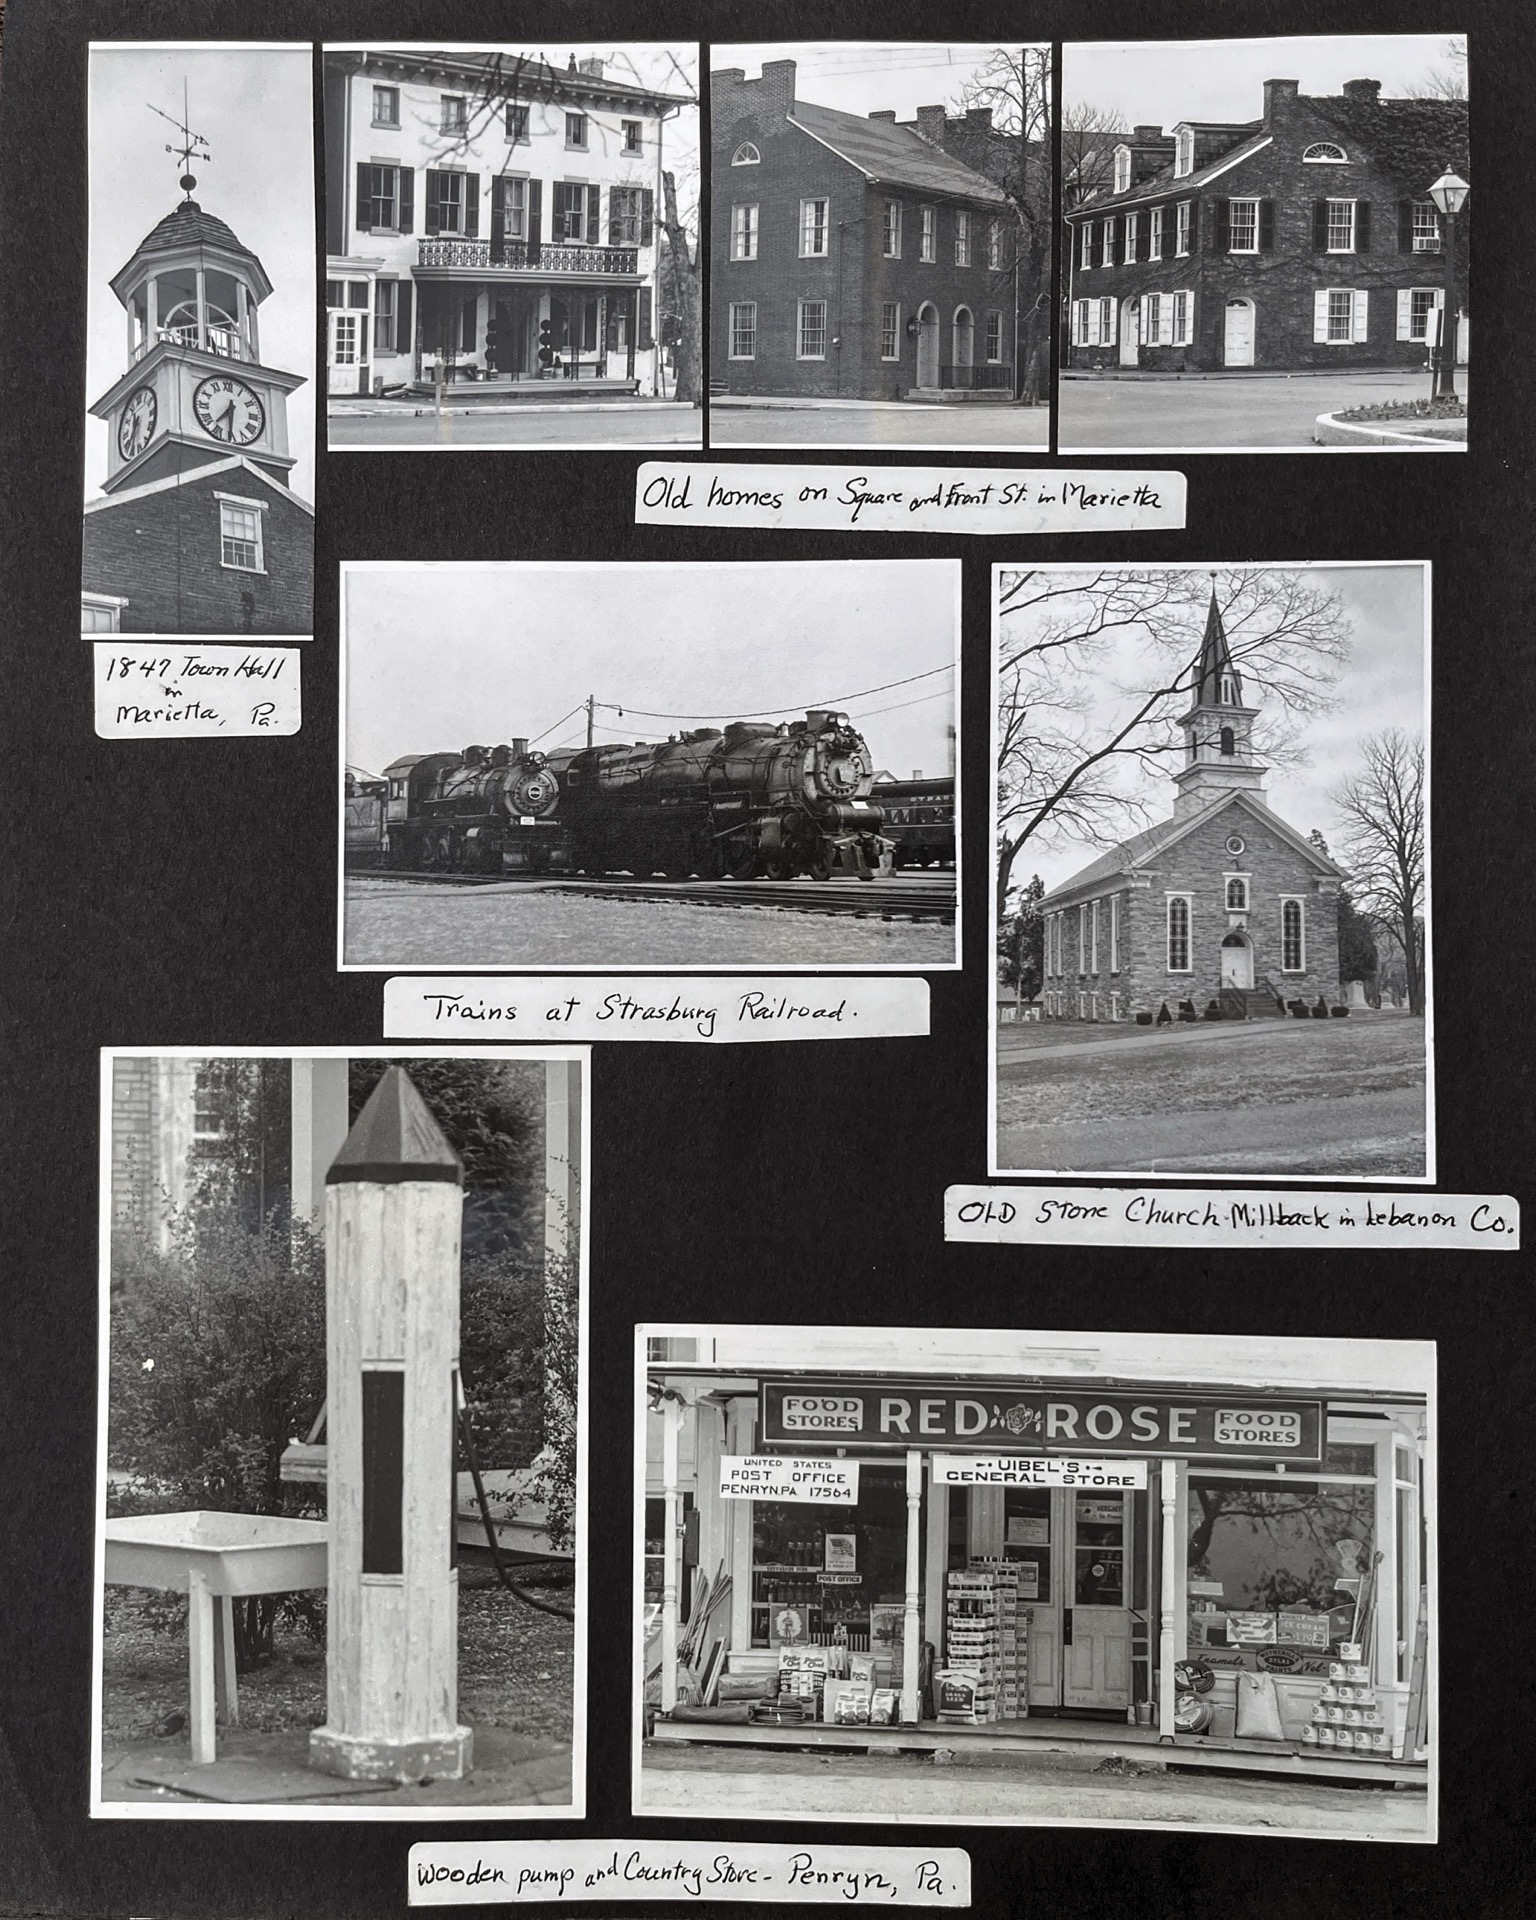 Old homes on Square and Front St. in Marietta
1847 Town Hall
in
Marietta, Pa.
STRAS
Trains at Strasburg Railroad.
OLD Stone Church-Millback in Lebanon Co.
FOOD
STORES
RED ROSE
FOOD
STORES
UNITED STATES
POST OFFICE
PENRYN.PA. 17564
UIBEL'S
GENERAL STORE
POST OFFICE
17564
ICE CREAM
Enamels
PAINTS
Wooden pump and Country Store - Penryn, Pa.